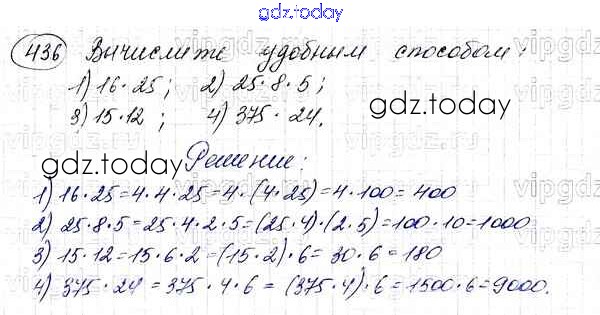 gdz.today
436 Вычислите удобным способом:
1) 16·25; 2) 25·8·5;
3) 15·12; 4) 375·24.
gdz.today
gdz.today
Решение:
1) 16·25=4·4·25=4·(4·25)=4·100=400
2) 25·8·5=25·4·2·5=(25·4)·(2·5)=100·10=1000
3) 15·12=15·6·2=(15·2)·6=30·6=180
4) 375·24=375·4·6=(375·4)·6=1500·6=9000.